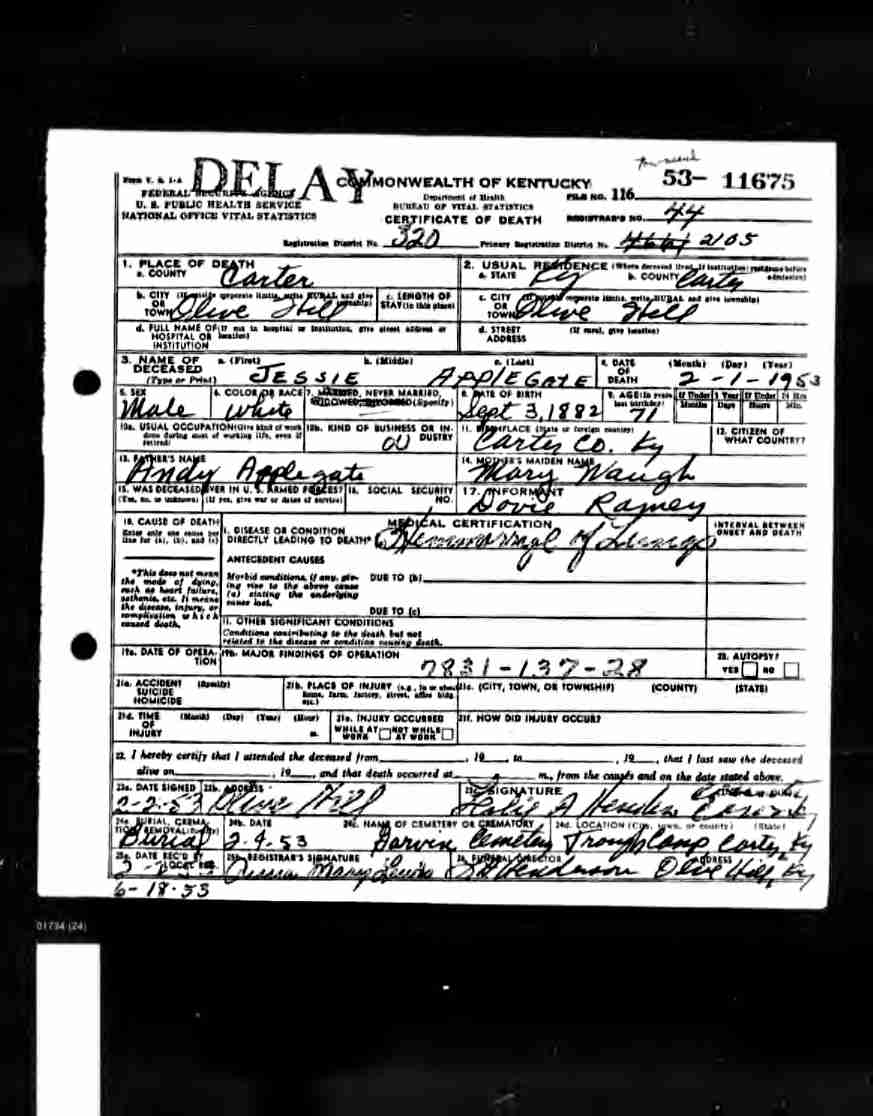 DELAY
Form V. S. 1-A
FEDERAL SECURITY AGENCY
U. S. PUBLIC HEALTH SERVICE
NATIONAL OFFICE VITAL STATISTICS
COMMONWEALTH OF KENTUCKY
Department of Health
BUREAU OF VITAL STATISTICS
CERTIFICATE OF DEATH
FILE NO. 116 53- 11675
REGISTRAR'S NO. 44
Registration District No. 320 Primary Registration District No. 2105
1. PLACE OF DEATH
a. COUNTY Carter
2. USUAL RESIDENCE (Where deceased lived. If institution: residence before admission)
a. STATE Ky b. COUNTY Carter
b. CITY (If outside corporate limits, write RURAL and give township) OR TOWN Olive Hill
c. LENGTH OF STAY (in this place)
c. CITY (If outside corporate limits, write RURAL and give township) OR TOWN Olive Hill
d. FULL NAME OF (If not in hospital or institution, give street address or location) HOSPITAL OR INSTITUTION
d. STREET ADDRESS (If rural, give location)
3. NAME OF DECEASED (Type or Print) a. (First) b. (Middle) c. (Last)
JESSIE APPLEGATE
4. DATE OF DEATH (Month) (Day) (Year)
2-1-1953
5. SEX Male
6. COLOR OR RACE White
7. MARRIED, NEVER MARRIED, WIDOWED, DIVORCED (Specify)
8. DATE OF BIRTH Sept 3, 1882
9. AGE (In years last birthday) 71
If Under 1 Year Months Days
If Under 24 Hrs Hours Min.
10a. USUAL OCCUPATION (Give kind of work done during most of working life, even if retired)
10b. KIND OF BUSINESS OR INDUSTRY
11. BIRTHPLACE (State or foreign country) Carter Co. Ky
12. CITIZEN OF WHAT COUNTRY?
13. FATHER'S NAME Andy Applegate
14. MOTHER'S MAIDEN NAME Mary Waugh
15. WAS DECEASED EVER IN U. S. ARMED FORCES? (Yes, no, or unknown) (If yes, give war or dates of service)
16. SOCIAL SECURITY NO.
17. INFORMANT Dovie Ramey
18. CAUSE OF DEATH
Enter only one cause per line for (a), (b), and (c)
MEDICAL CERTIFICATION
I. DISEASE OR CONDITION DIRECTLY LEADING TO DEATH* Hemmorrage of Lungs
INTERVAL BETWEEN ONSET AND DEATH
*This does not mean the mode of dying, such as heart failure, asthenia, etc. It means the disease, injury, or complication which caused death.
ANTECEDENT CAUSES
Morbid conditions, if any, giving rise to the above cause (a) stating the underlying cause last.
DUE TO (b)
DUE TO (c)
II. OTHER SIGNIFICANT CONDITIONS
Conditions contributing to the death but not related to the disease or condition causing death.
19a. DATE OF OPERATION
19b. MAJOR FINDINGS OF OPERATION
7831-137-28
20. AUTOPSY? YES NO
21a. ACCIDENT SUICIDE HOMICIDE (Specify)
21b. PLACE OF INJURY (e.g., in or about home, farm, factory, street, office bldg. etc.)
21c. (CITY, TOWN, OR TOWNSHIP) (COUNTY) (STATE)
21d. TIME OF INJURY (Month) (Day) (Year) (Hour) m.
21e. INJURY OCCURRED WHILE AT WORK NOT WHILE AT WORK
21f. HOW DID INJURY OCCUR?
22. I hereby certify that I attended the deceased from , 19 , to , 19 , that I last saw the deceased
alive on , 19 , and that death occurred at m., from the causes and on the date stated above.
23a. DATE SIGNED 2-2-53
23b. ADDRESS Olive Hill
23c. SIGNATURE
24a. BURIAL, CREMATION, REMOVAL Burial
24b. DATE 2-4-53
24c. NAME OF CEMETERY OR CREMATORY Garvin Cemetery
24d. LOCATION (City, town, or county) (State) Trough Camp Carter, Ky
25a. DATE REC'D BY LOCAL REG.
25b. REGISTRAR'S SIGNATURE
26. FUNERAL DIRECTOR Henderson
ADDRESS Olive Hill, Ky
6-18-53
01734 (24)